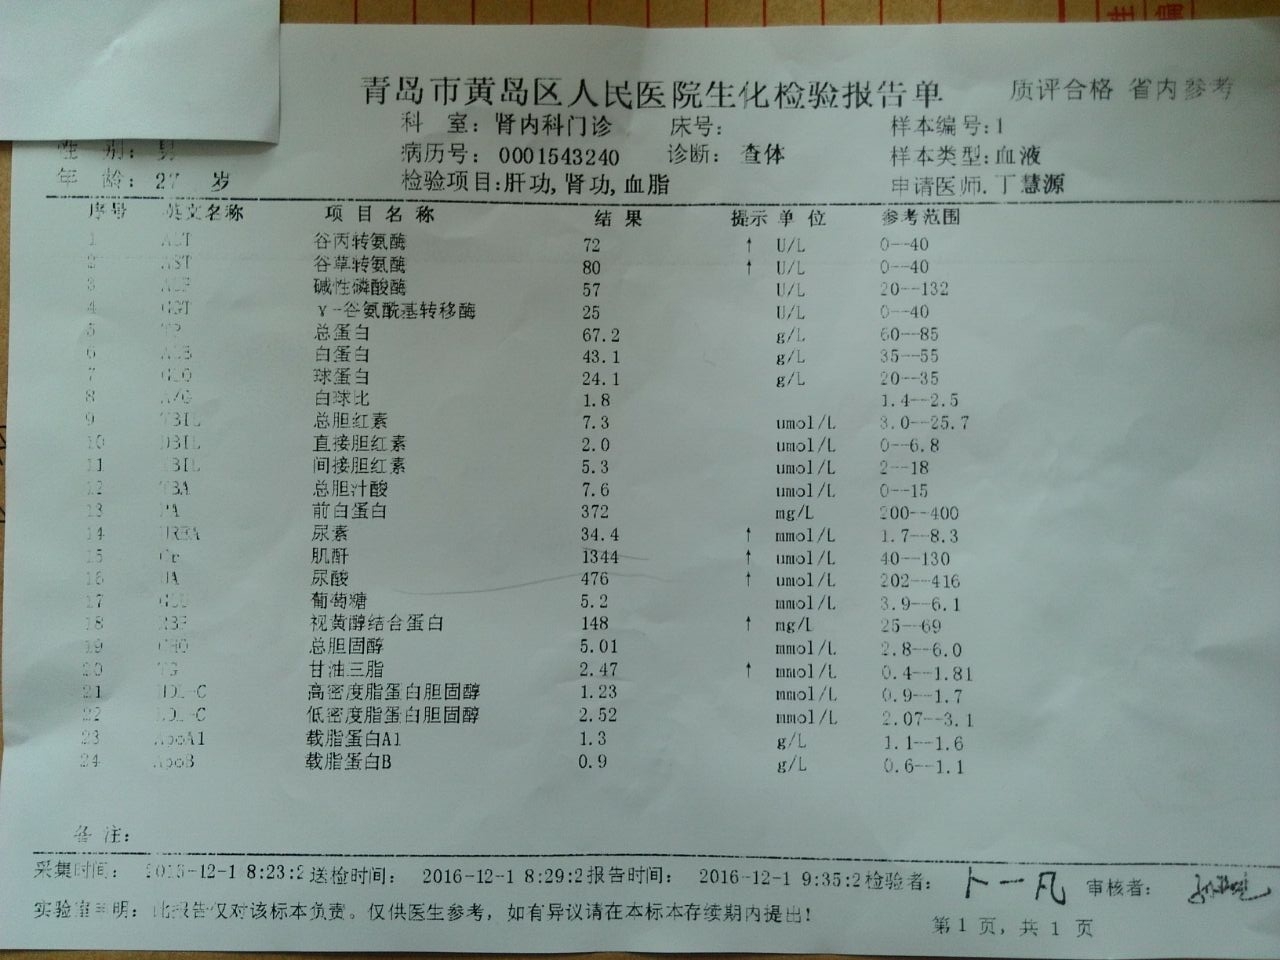 青岛市黄岛区人民医院生化检验报告单 质评合格 省内参考
科 室: 肾内科门诊 床号: 样本编号:1
性 别: 男 病历号: 0001543240 诊断: 查体 样本类型:血液
年 龄: 27 岁 检验项目:肝功,肾功,血脂 申请医师.丁慧源
序号 英文名称 项目名称 结果 提示 单位 参考范围
1 ALT 谷丙转氨酶 72 ↑ U/L 0--40
2 AST 谷草转氨酶 80 ↑ U/L 0--40
3 ALP 碱性磷酸酶 57 U/L 20--132
4 GGT γ-谷氨酰基转移酶 25 U/L 0--40
5 TP 总蛋白 67.2 g/L 60--85
6 ALB 白蛋白 43.1 g/L 35--55
7 GLO 球蛋白 24.1 g/L 20--35
8 A/G 白球比 1.8 1.4--2.5
9 TBIL 总胆红素 7.3 umol/L 3.0--25.7
10 DBIL 直接胆红素 2.0 umol/L 0--6.8
11 IBIL 间接胆红素 5.3 umol/L 2--18
12 TBA 总胆汁酸 7.6 umol/L 0--15
13 PA 前白蛋白 372 mg/L 200--400
14 UREA 尿素 34.4 ↑ mmol/L 1.7--8.3
15 Cr 肌酐 1344 ↑ umol/L 40--130
16 UA 尿酸 476 ↑ umol/L 202--416
17 GLU 葡萄糖 5.2 mmol/L 3.9--6.1
18 RBP 视黄醇结合蛋白 148 ↑ mg/L 25--69
19 CHO 总胆固醇 5.01 mmol/L 2.8--6.0
20 TG 甘油三脂 2.47 ↑ mmol/L 0.4--1.81
21 HDL-C 高密度脂蛋白胆固醇 1.23 mmol/L 0.9--1.7
22 LDL-C 低密度脂蛋白胆固醇 2.52 mmol/L 2.07--3.1
23 ApoA1 载脂蛋白A1 1.3 g/L 1.1--1.6
24 ApoB 载脂蛋白B 0.9 g/L 0.6--1.1
备 注:
采集时间: 2016-12-1 8:23:2 送检时间: 2016-12-1 8:29:2 报告时间: 2016-12-1 9:35:2 检验者: 卜一凡 审核者:
实验室声明: 此报告仅对该标本负责。仅供医生参考,如有异议请在本标本存续期内提出!
第 1 页, 共 1 页